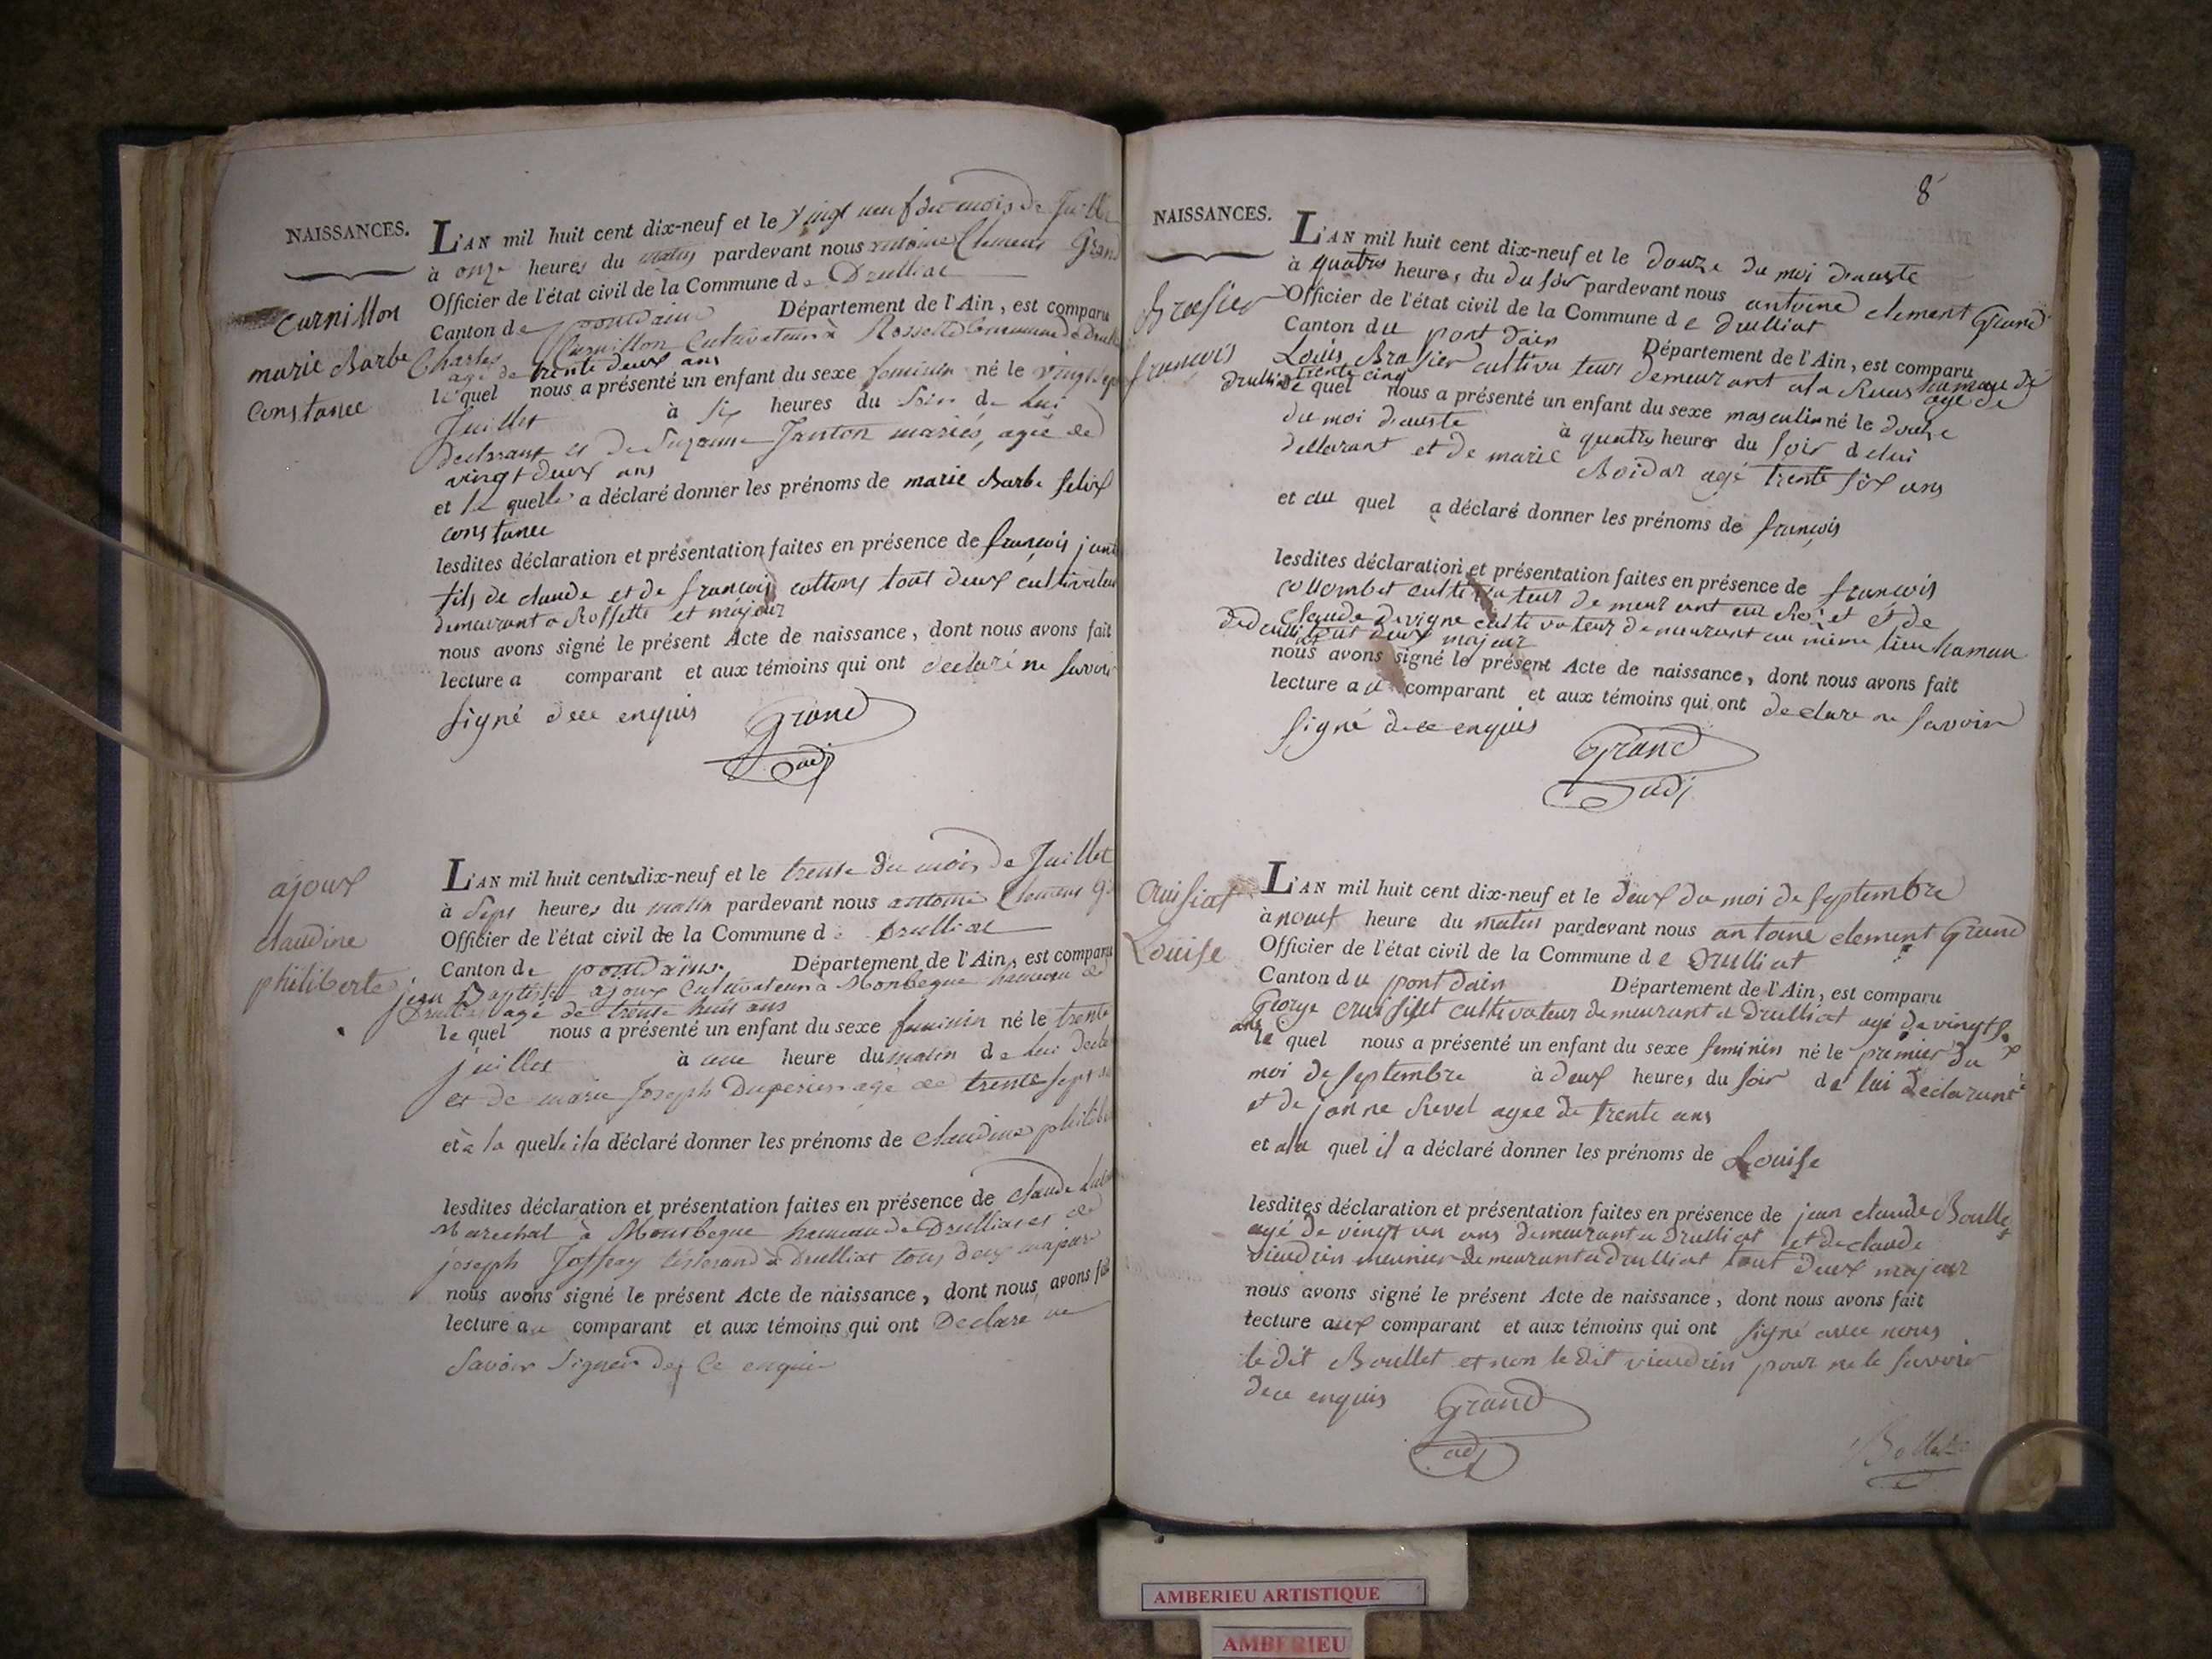 NAISSANCES.
L'AN mil huit cent dix-neuf et le vingt neuf du mois de Juillet
à onze heures du matin pardevant nous antoine Clement Grand
Officier de l'état civil de la Commune de Drulliat
Canton de pontdain Département de l'Ain, est comparu
Curnillon
marie Barbe
Constance
Charles Curnillon Cultivateur à Rossette Commune de
agé de trente deux ans
le quel nous a présenté un enfant du sexe feminin né le vingt
Juillet à six heures du Soir de lui
Declarant et de Suzanne Janton mariés, agée de
vingt deux ans
et la quelle a déclaré donner les prénoms de marie Barbe felix
constance
lesdites déclaration et présentation faites en présence de françois
fils de claude et de françois cottons tout deux cultivateur
demeurant a Rossette et majeur
nous avons signé le présent Acte de naissance, dont nous avons fait
lecture a comparant et aux témoins qui ont declaré ne savoir
signé dece enquis Grand
adj
L'AN mil huit cent dix-neuf et le trente du mois de Juillet
ajoux
claudine
philiberte
à Sept heures du matin pardevant nous antoine Clement
Officier de l'état civil de la Commune de Drulliat
Canton de pontdains Département de l'Ain, est comparu
jean Baptiste ajoux Cultivateur a Monbegue hameau de
Drulliat agé de trente huit ans
le quel nous a présenté un enfant du sexe feminin né le trente
juillet à une heure du matin de lui
et de marie Joseph Duperier agé de trente sept
et à la quelle il a déclaré donner les prénoms de Claudine
lesdites déclaration et présentation faites en présence de Claude
Marechal à Monbegue hameau de Drulliat et de
joseph Joffray tisserand à Drulliat tous deux majeur
nous avons signé le présent Acte de naissance, dont nous avons fait
lecture au comparant et aux témoins qui ont Declaré ne
Savoir Signer de Ce enquis
8
NAISSANCES.
L'AN mil huit cent dix-neuf et le douze du moi deauste
à quatre heures du du soir pardevant nous antoine clement Grand
Officier de l'état civil de la Commune de drulliat
Canton du pont dain Département de l'Ain, est comparu
Brasier
francois
Louis Brasier cultivateur demeurant
trente cinq
le quel nous a présenté un enfant du sexe masculin né le douze
du moi deauste à quatre heures du soir de lui
dellarant et de marie Boidar agé trente six ans
et au quel a déclaré donner les prénoms de françois
lesdites déclaration et présentation faites en présence de francois
collombet cultivateur demeurant et de
Claude davigne cultivateur demeurant au même lieu hamau
tout deux majeur
nous avons signé le présent Acte de naissance, dont nous avons fait
lecture au comparant et aux témoins qui ont declare ne savoir
signé dece enquis
Grand
adj
Cruisiat
Louise
L'AN mil huit cent dix-neuf et le deux du moi de septembre
à neuf heure du matin pardevant nous antoine clement Grand
Officier de l'état civil de la Commune de Drulliat
Canton du pont dain Département de l'Ain, est comparu
George cultivateur demeurant a drulliat agé de vingt
ans
le quel nous a présenté un enfant du sexe feminin né le premier du
moi de septembre à deux heures du soir de lui declarant
et de janne Revel agee de trente ans
et ala quel il a déclaré donner les prénoms de Louise
lesdites déclaration et présentation faites en présence de jean claude Boullet
agé de vingt un ans demeurant a drulliat et de claude
vieudrin meunier demeurant a drulliat tout deux majeur
nous avons signé le présent Acte de naissance, dont nous avons fait
lecture aux comparant et aux témoins qui ont signé avec nous
le dit Boullet et non le dit vieudrin pour ne le savoir
dece enquis Grand
adj
AMBERIEU ARTISTIQUE
AMBERIEU